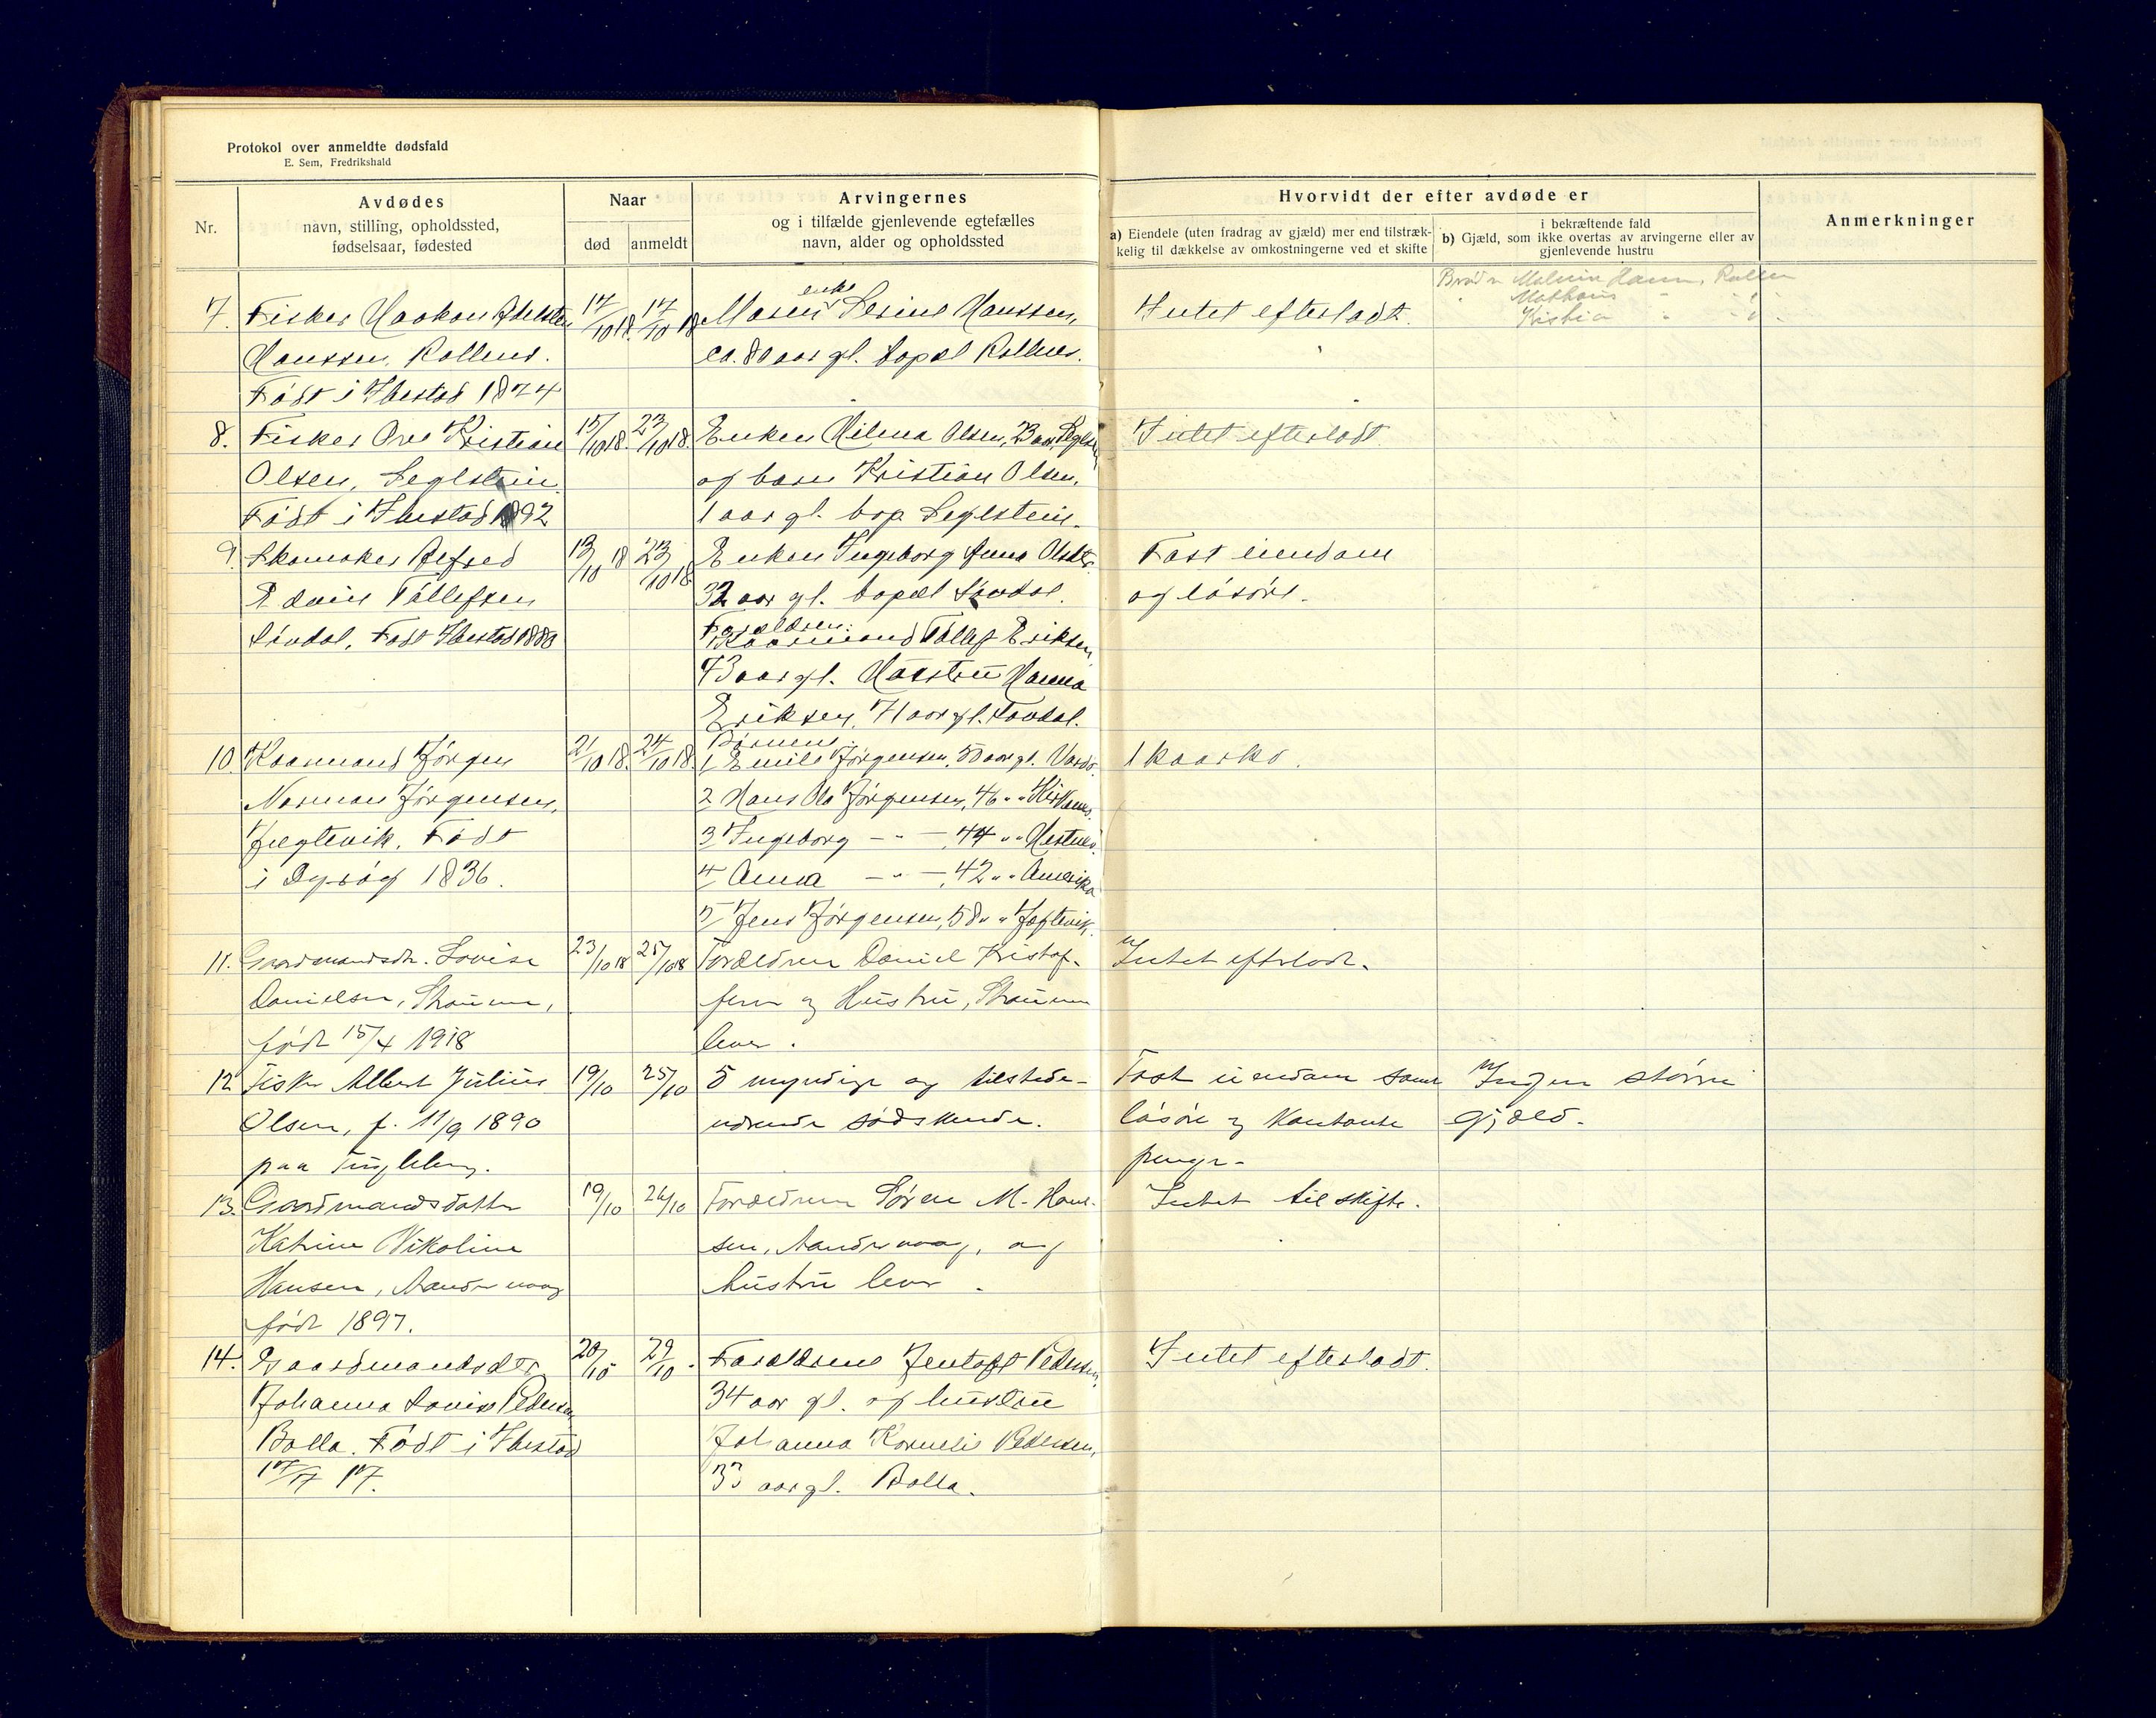 Protokol over anmeldte dødsfald
E. Sem, Fredrikshald
Nr.
Avdødes
navn, stilling, opholdssted,
fødselsaar, fødested
Naar
død
anmeldt
Arvingernes
og i tilfælde gjenlevende egtefælles
navn, alder og opholdssted
Hvorvidt der efter avdøde er
a) Eiendele (uten fradrag av gjæld) mer end tilstræk-
kelig til dækkelse av omkostningerne ved et skifte
i bekræftende fald
b) Gjæld, som ikke overtas av arvingerne eller av
gjenlevende hustru
Anmerkninger
7. Fisker Haakon
Hanssen, Rollnes.
Født i Ibestad 1874
17/10 18. 17/10 18
enke
Moren Serine Hanssen,
ca. 80 aar gl. bopæl Rollnes.
Intet efterladt.
8. Fisker Ove Kristian
Olsen, Seglstein.
Født i Ibestad 1892
15/10 18. 23/10 18.
Enken Hilma Olsen,
og barn Kristian Olsen,
1 aar gl. bop. Seglstein.
Intet efterladt.
9. Skomaker Alfred
Edvin Tollefsen
Født Ibestad 1880
13/10 18 23/10 18
Enken Ingeborg Anna Olsdtr.
32 aar gl. bopæl
Forældrene:
Kaarmand Tollef Eriksen
73 aar gl. Hustru Hanna
Eriksen, 71 aar gl.
Fast eiendom
og løsøre.
10. Kaarmand Jørgen
Norman Jørgensen,
Jægtevik. Født
i Dyrøy 1836.
21/10 18. 24/10 18.
Børnene:
1 Emil Jørgensen, 50 aar gl. Vardø.
2 Hans Ola Jørgensen, 46 " " Kirkenes.
3 Ingeborg — " — 44 " "
4 Anna — " —, 42 " " Amerika
5 Jens Jørgensen, 58 " " Jægtevik.
1 kaarko.
11. Gaardmandsdtr. Lovise
Danielsen,
født 15/4 1918
23/10 18 25/10 18
Forældrene Daniel Kristof-
fersen og Hustru,
lever.
Intet efterladt.
12. Fisker Albert Julius
Olsen, f. 11/9 1890
paa
19/10 25/10
5 myndige og tilstede-
værende sødskende.
Fast eiendom samt
løsøre og kontante
penge.
Ingen større
gjæld.
13. Gaardmandsdatter
Katrine Nikoline
Hansen,
født 1897.
19/10 26/10
Forældrene Søren M. Han-
sen, og
hustru lever.
Intet til skifte.
14. Gaardmandsdtr.
Johanna Lovise Pedersen
Bolla. Født i Ibestad
17/7 17.
20/10 29/10.
Forældrene Jentoft Pedersen,
34 aar gl. og hustru
Johanna Kornelie Pedersen,
33 aar gl. Bolla.
Intet efterladt.